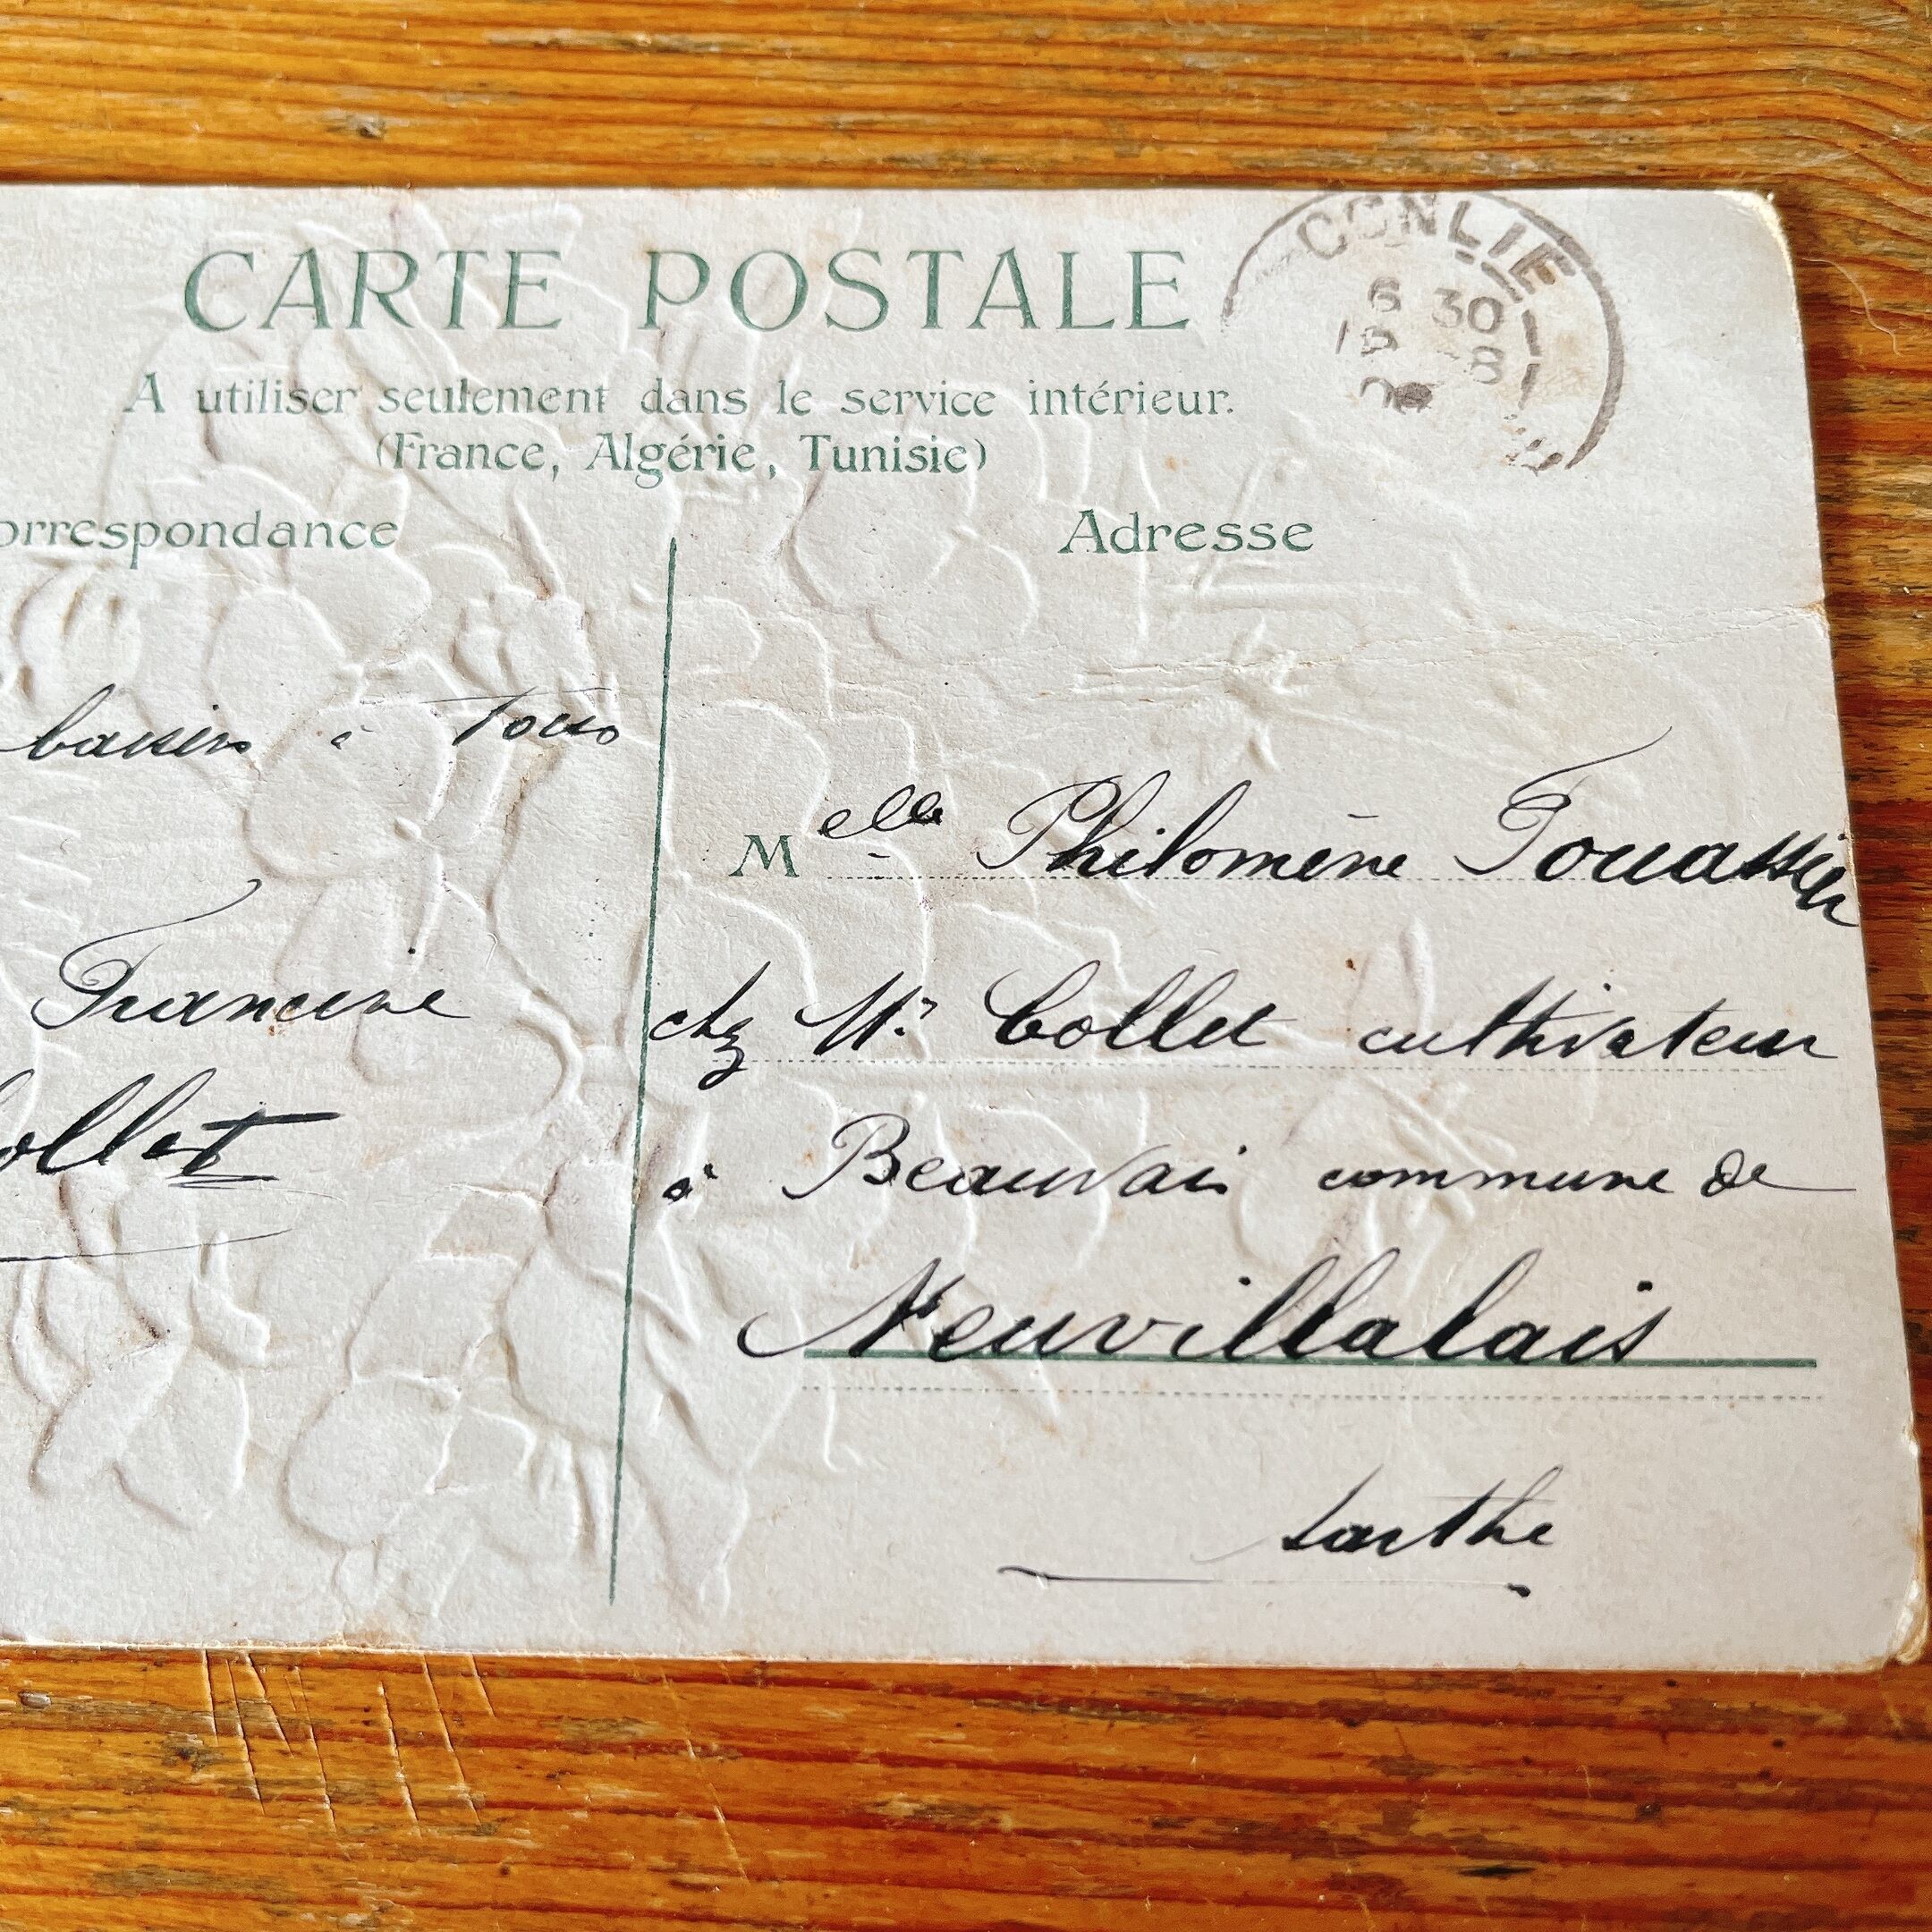 CARTE POSTALE
A utiliser seulement dans le service intérieur.
(France, Algérie, Tunisie)
CONLIE
6 30
15 -8
orrespondance
baisers à Tous
Francine
ollet
Adresse
Melle Philomène Touassier
chz Mr. Collet cultivateur
à Beauvais commune de
Neuvillalais
Sarthe